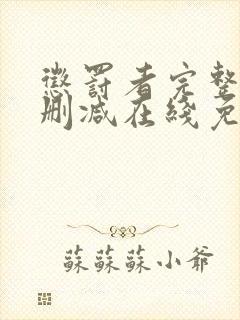 懲罰者完整
刪減在綫免
蘇蘇蘇小爺